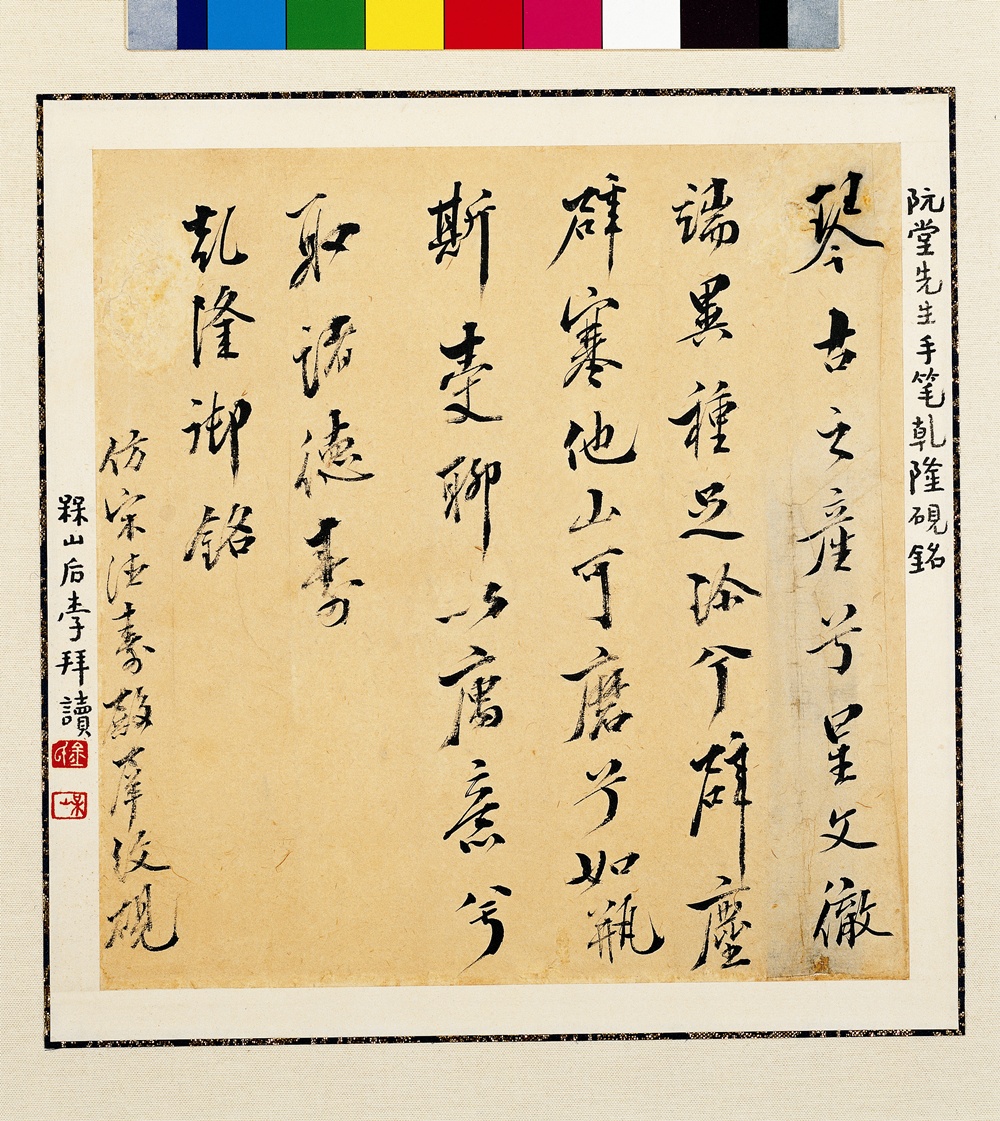 阮堂先生手笔乾隆硯銘
琴古之産兮星文徹
端異種足珍兮辟塵
辟寒他山可磨兮如瓶
斯聊以寓意兮
取諸德壽
乾隆御銘
仿宋德壽殿犀紋硯
槑山后李拜讀